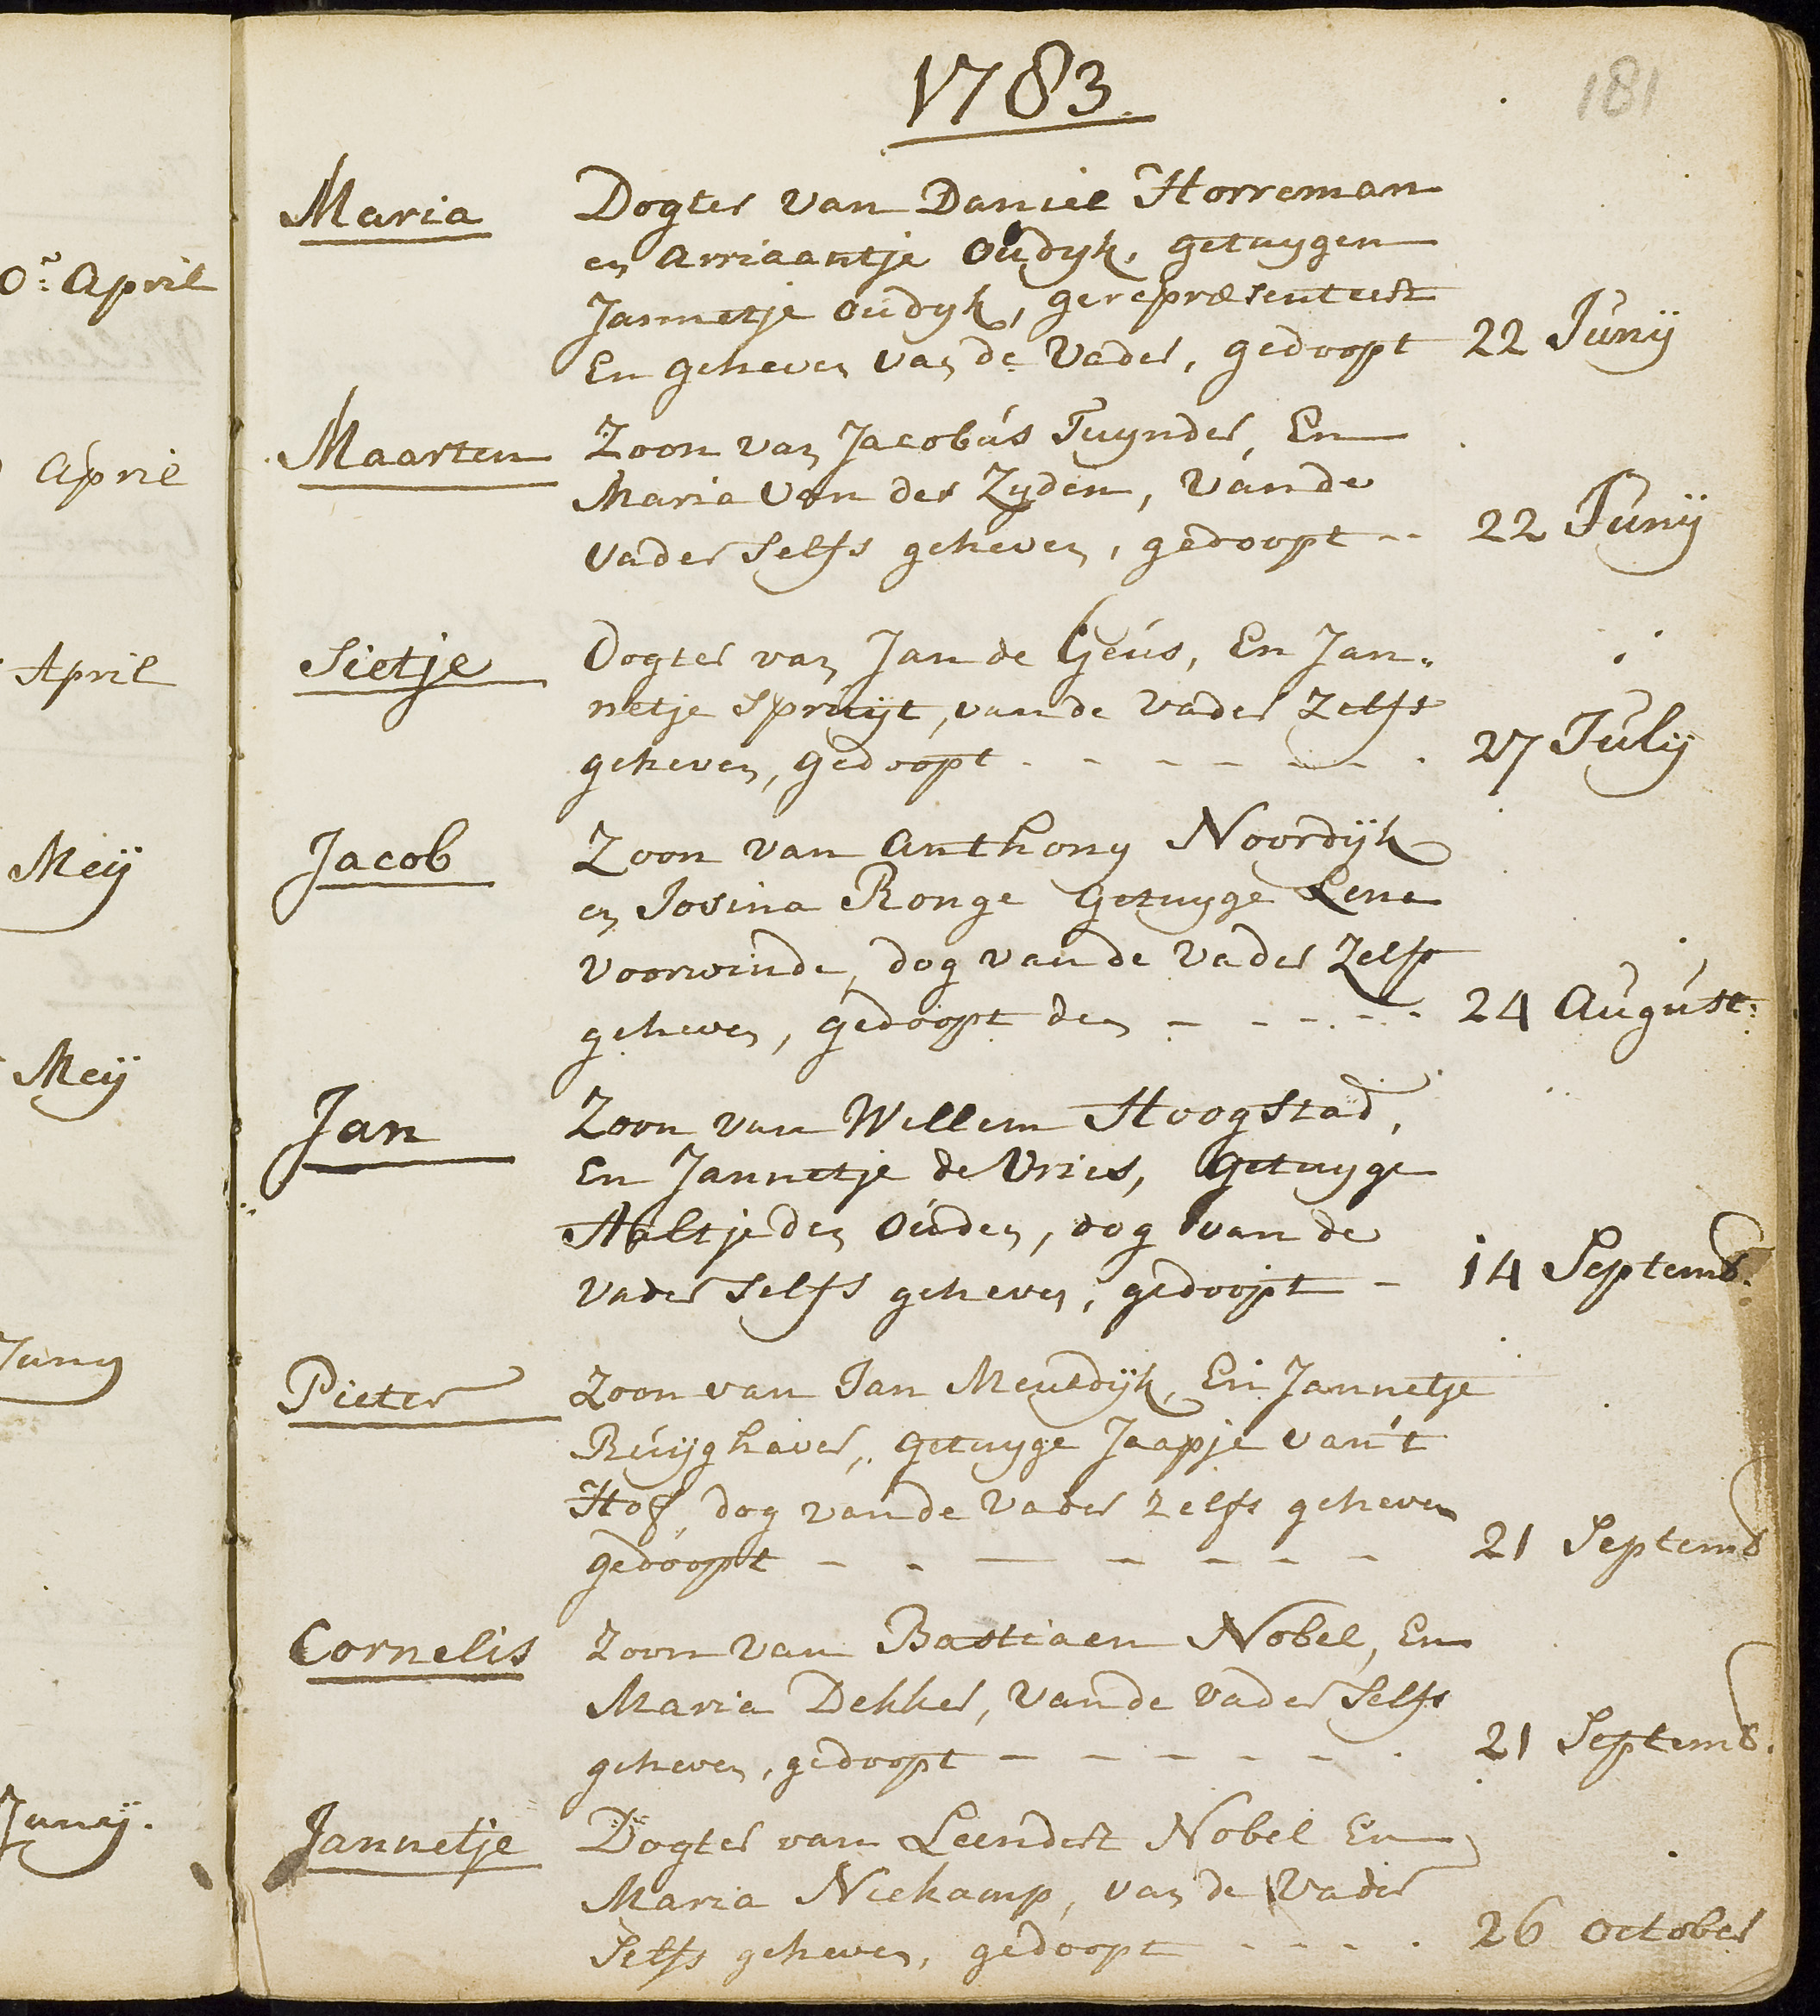 1783.
181
0.e April
April
April
Meij
Meij
Juny
Junij.
Maria Dogter van Daniel Horreman
en Arriaantje Oudyk, getuygen
Jannetje Oudyk, gerepræsenteert
En geheven van de Vader, gedoopt 22 Junij
Maarten Zoon van Jacobus Tuynder, En
Maria Van der Zyden, Van de
Vader Selfs geheven, gedoopt -- 22 Junij
Sietje Dogter van Jan de Geus, En Jan„
netje Spruijt, van de Vader Zelfs
geheven, gedoopt - - - - - - - 27 Julij
Jacob Zoon van Anthony Noordijk
en Josina Ronge Getuyge Lena
Voorwinde, dog van de Vader Zelfs
geheven, gedoopt den - - - - - - 24 August:
Jan Zoon van Willem Hoogstad,
En Jannetje de Vries, Getuyge
Aaltje den Ouden, dog van de
Vader Selfs geheven, gedoopt - 14 Septemb:
Pieter Zoon van Jan Meusdijk, En Jannetje
Ruijghaver, Getuyge Jaapje van 't
Hof, dog van de Vader Zelfs geheven
gedoopt - - - - - - - 21 Septemb
Cornelis Zoon van Bastiaen Nobel, En
Maria Dekker, Van de Vader Selfs
geheven, gedoopt - - - - - - - 21 Septemb.
Jannetje Dogter van Leendert Nobel En
Maria Niekamp, van de Vader
Selfs geheven, gedoopt - - - - 26 October